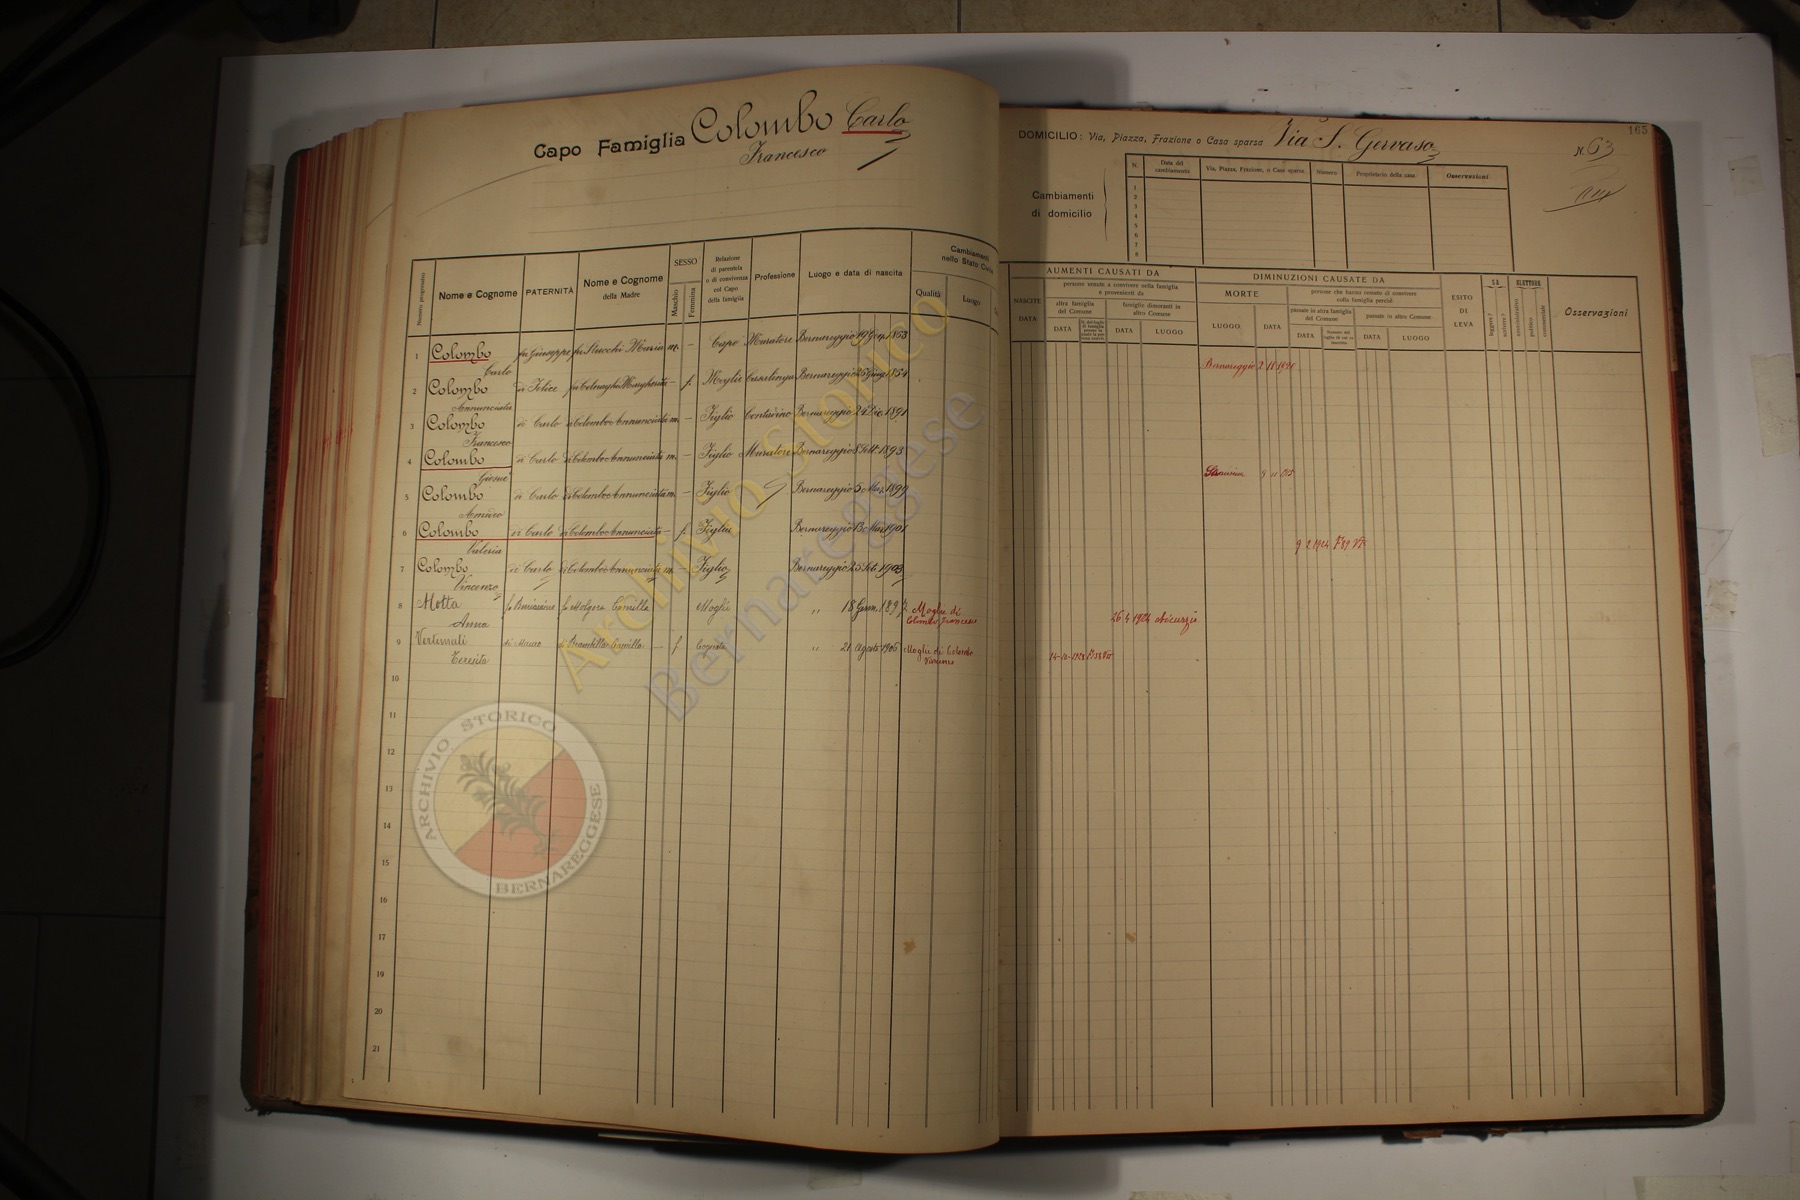 Capo Famiglia Colombo Carlo
Francesco
DOMICILIO: Via, Piazza, Frazione o Casa sparsa Via S. Gervaso
N. 63
165
Cambiamenti
di domicilio
N. Data del cambiamento Via, Piazza, Frazione, o Casa sparsa Numero Proprietario della casa Osservazioni
1
2
3
4
5
6
7
8
Numero progressivo Nome e Cognome PATERNITÀ Nome e Cognome della Madre SESSO Maschio Femmina Relazione di parentela o di convivenza col Capo della famiglia Professione Luogo e data di nascita Cambiamenti nello Stato Civile Qualità Luogo
NASCITE DATA AUMENTI CAUSATI DA persone venute a convivere nella famiglia e provenienti da altra famiglia del Comune DATA famiglie dimoranti in altro Comune DATA LUOGO
DIMINUZIONI CAUSATE DA MORTE LUOGO DATA persone che hanno cessato di convivere colla famiglia perchè passate in altra famiglia del Comune DATA passate in altro Comune DATA LUOGO
ESITO DI LEVA SA leggere? scrivere? ELETTORE amministrativo politico commerciale Osservazioni
1 Colombo Carlo fu Giuseppe fu Stucchi Maria m. – Capo Muratore Bernareggio 19 1853 Bernareggio 2 11
2 Colombo Annunciata di Felice fu Margherita – f. Moglie Casalinga Bernareggio 25 1854
3 Colombo Francesco di Carlo di Colombo Annunciata m. – Figlio Contadino Bernareggio 2 Dic. 1891
4 Colombo Giosuè di Carlo di Colombo Annunciata m. – Figlio Muratore Bernareggio 8 Sett. 1893
5 Colombo Amileo di Carlo di Colombo Annunciata m. – Figlio Bernareggio 5 Mar. 1899
6 Colombo Valeria di Carlo di Colombo Annunciata – f. Figlia Bernareggio 13 Mar. 1901 9 2 1924
7 Colombo Vincenzo di Carlo di Colombo Annunciata m. – Figlio Bernareggio 25 1903
8 Motta Anna fu Camilla Moglie " 18 Genn. 189 Moglie di Colombo Francesco 26 4 1924
9 Teresita di Brambilla Camilla – f Cognata " 21 Agosto 1906 Moglie di Colombo Vincenzo
10
11
12
13
14
15
16
17
18
19
20
21
Archivio Storico
Bernareggese
ARCHIVIO STORICO
BERNAREGGESE